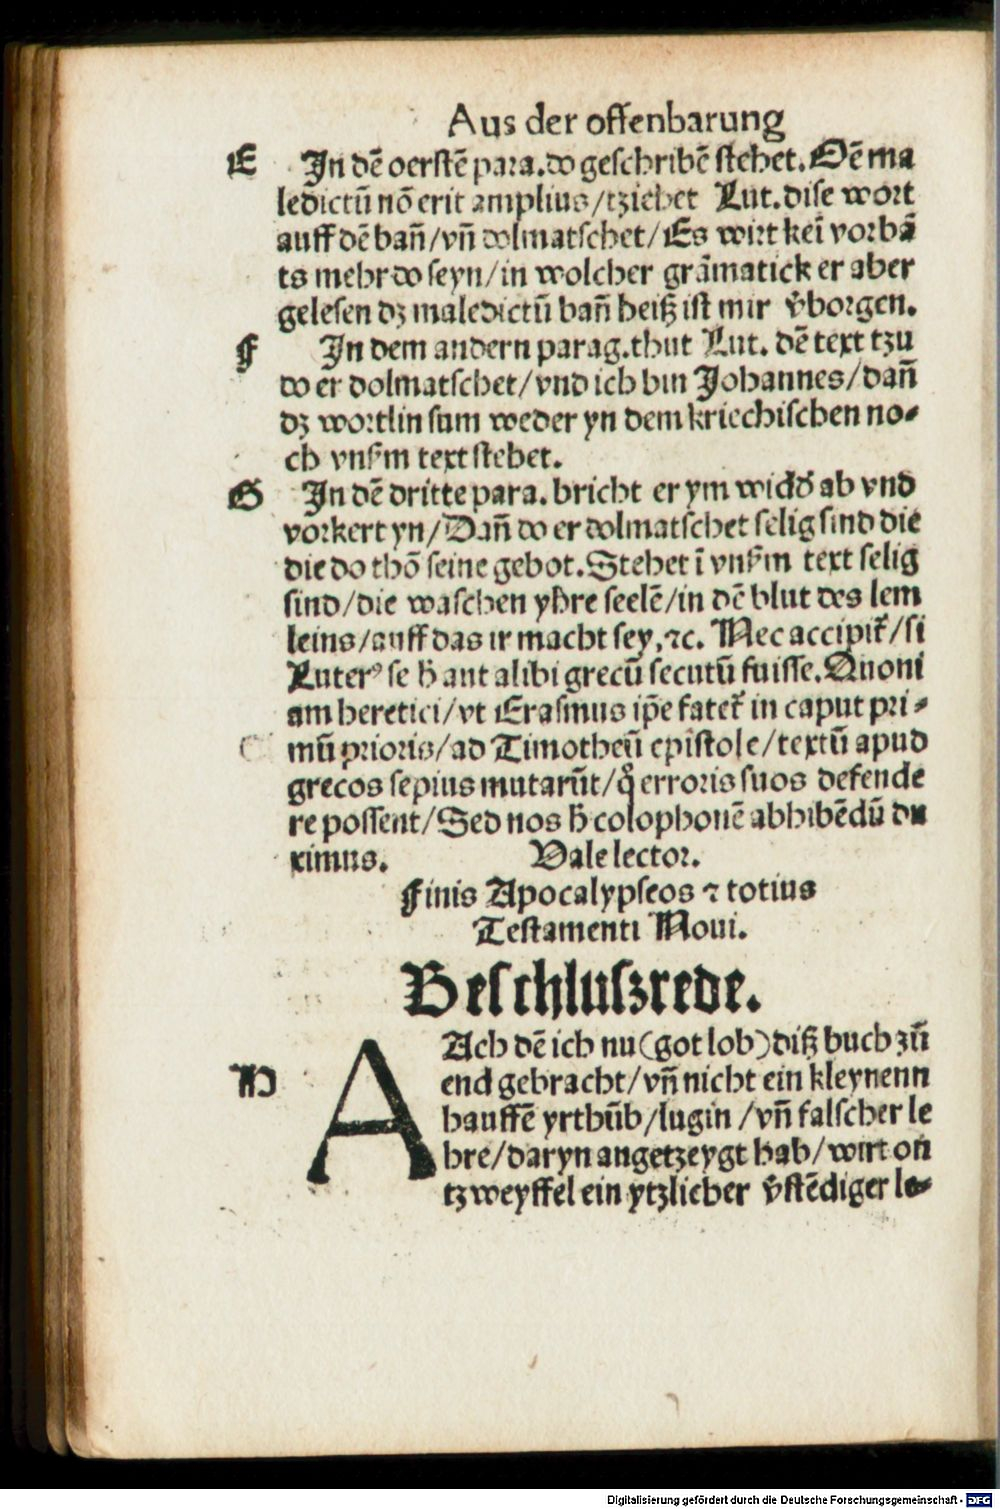 Aus der offenbarung
E In dē oerstē para. do geschribē stehet. Oē ma
ledictū nō erit amplius/tziehet Lut. dise wort
auff dē bañ/vñ dolmatschet/Es wirt keī vorbā
ts mehr do seyn/in wolcher grāmatick er aber
gelesen dz maledictū bañ heiß ist mir v̄borgen.
F In dem andern parag. thut Lut. dē text tzu
do er dolmatschet/vnd ich bin Johannes/dañ
dz wortlin sum weder yn dem kriechischen no⸗
ch vnsm̄ text stehet.
G In dē dritte para. bricht er ym widď ab vnd
vorkert yn/Dañ do er dolmatschet selig sind die
die do thō seine gebot. Stehet ī vnsm̄ text selig
sind/die waschen yhre seelē/in dē blut des lem
leins/auff das ir macht sey, ⁊c. Nec accipit̄/si
Luterꝰ se h̄ aut alibi grecū secutū fuisse. Quoni
am heretici/vt Erasmus ip̄e fatet̄ in caput pri⸗
mū prioris/ad Timotheū epistole/textū apud
grecos sepius mutarūt/q̊ erroris suos defende
re possent/Sed nos h̄ colophonē abhibēdū du
ximus. Vale lector.
Finis Apocalypseos ⁊ totius
Testamenti Noui.
Beschluszrede.
N AAch dē ich nu (got lob) diß buch zū
end gebracht/vñ nicht ein kleynenn
hauffē yrthūb/lugin/vñ falscher le
hre/daryn angetzeygt hab/wirt on
tzweyffel ein ytzlicher v̄stēdiger le⸗
Digitalisierung gefördert durch die Deutsche Forschungsgemeinschaft - DFG